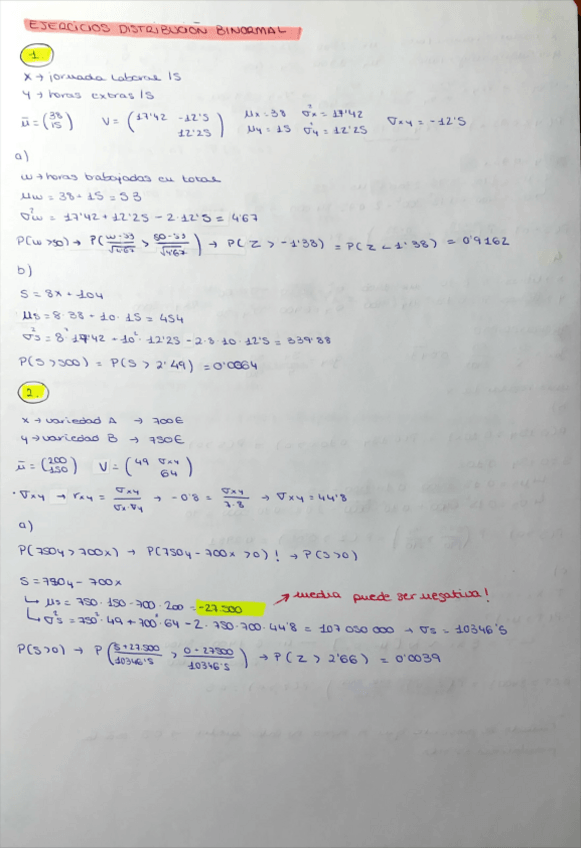 EJERCICIOS DISTRIBUCIÓN BINORMAL
1.
X → jornada laboral /S
Y → horas extras /S
μ̄ = (38 15) V = (17'42 -12'5 12'25) μx = 38 σ²x = 17'42 μy = 15 σ²y = 12'25 σxy = -12'5
a)
W → horas trabajadas en total
μw = 38 + 15 = 53
σ²w = 17'42 + 12'25 - 2·12'5 = 4'67
P(W>50) → P(W-53/√4'67 > 50-53/√4'67) → P(Z > -1'38) = P(Z < 1'38) = 0'9162
b)
S = 8x + 10y
μs = 8·38 + 10·15 = 454
σ²s = 8²·17'42 + 10²·12'25 - 2·8·10·12'5 = 339'88
P(S>500) = P(S > 2'49) = 0'0064
2.
X → variedad A → 700€
Y → variedad B → 750€
μ̄ = (200 150) V = (49 σxy 64)
· σxy → rxy = σxy/σx·σy → -0'8 = σxy/7·8 → σxy = 44'8
a)
P(750y > 700x) → P(750y - 700x > 0)! → P(S>0)
S = 750y - 700x
↳ μs = 750·150 - 700·200 = -27.500 → media puede ser negativa!
↳ σ²s = 750²·49 + 700²·64 - 2·750·700·44'8 = 107 050 000 → σs = 10346'5
P(S>0) → P(S+27.500/10346'5 > 0-27500/10346'5) → P(Z > 2'66) = 0'0039